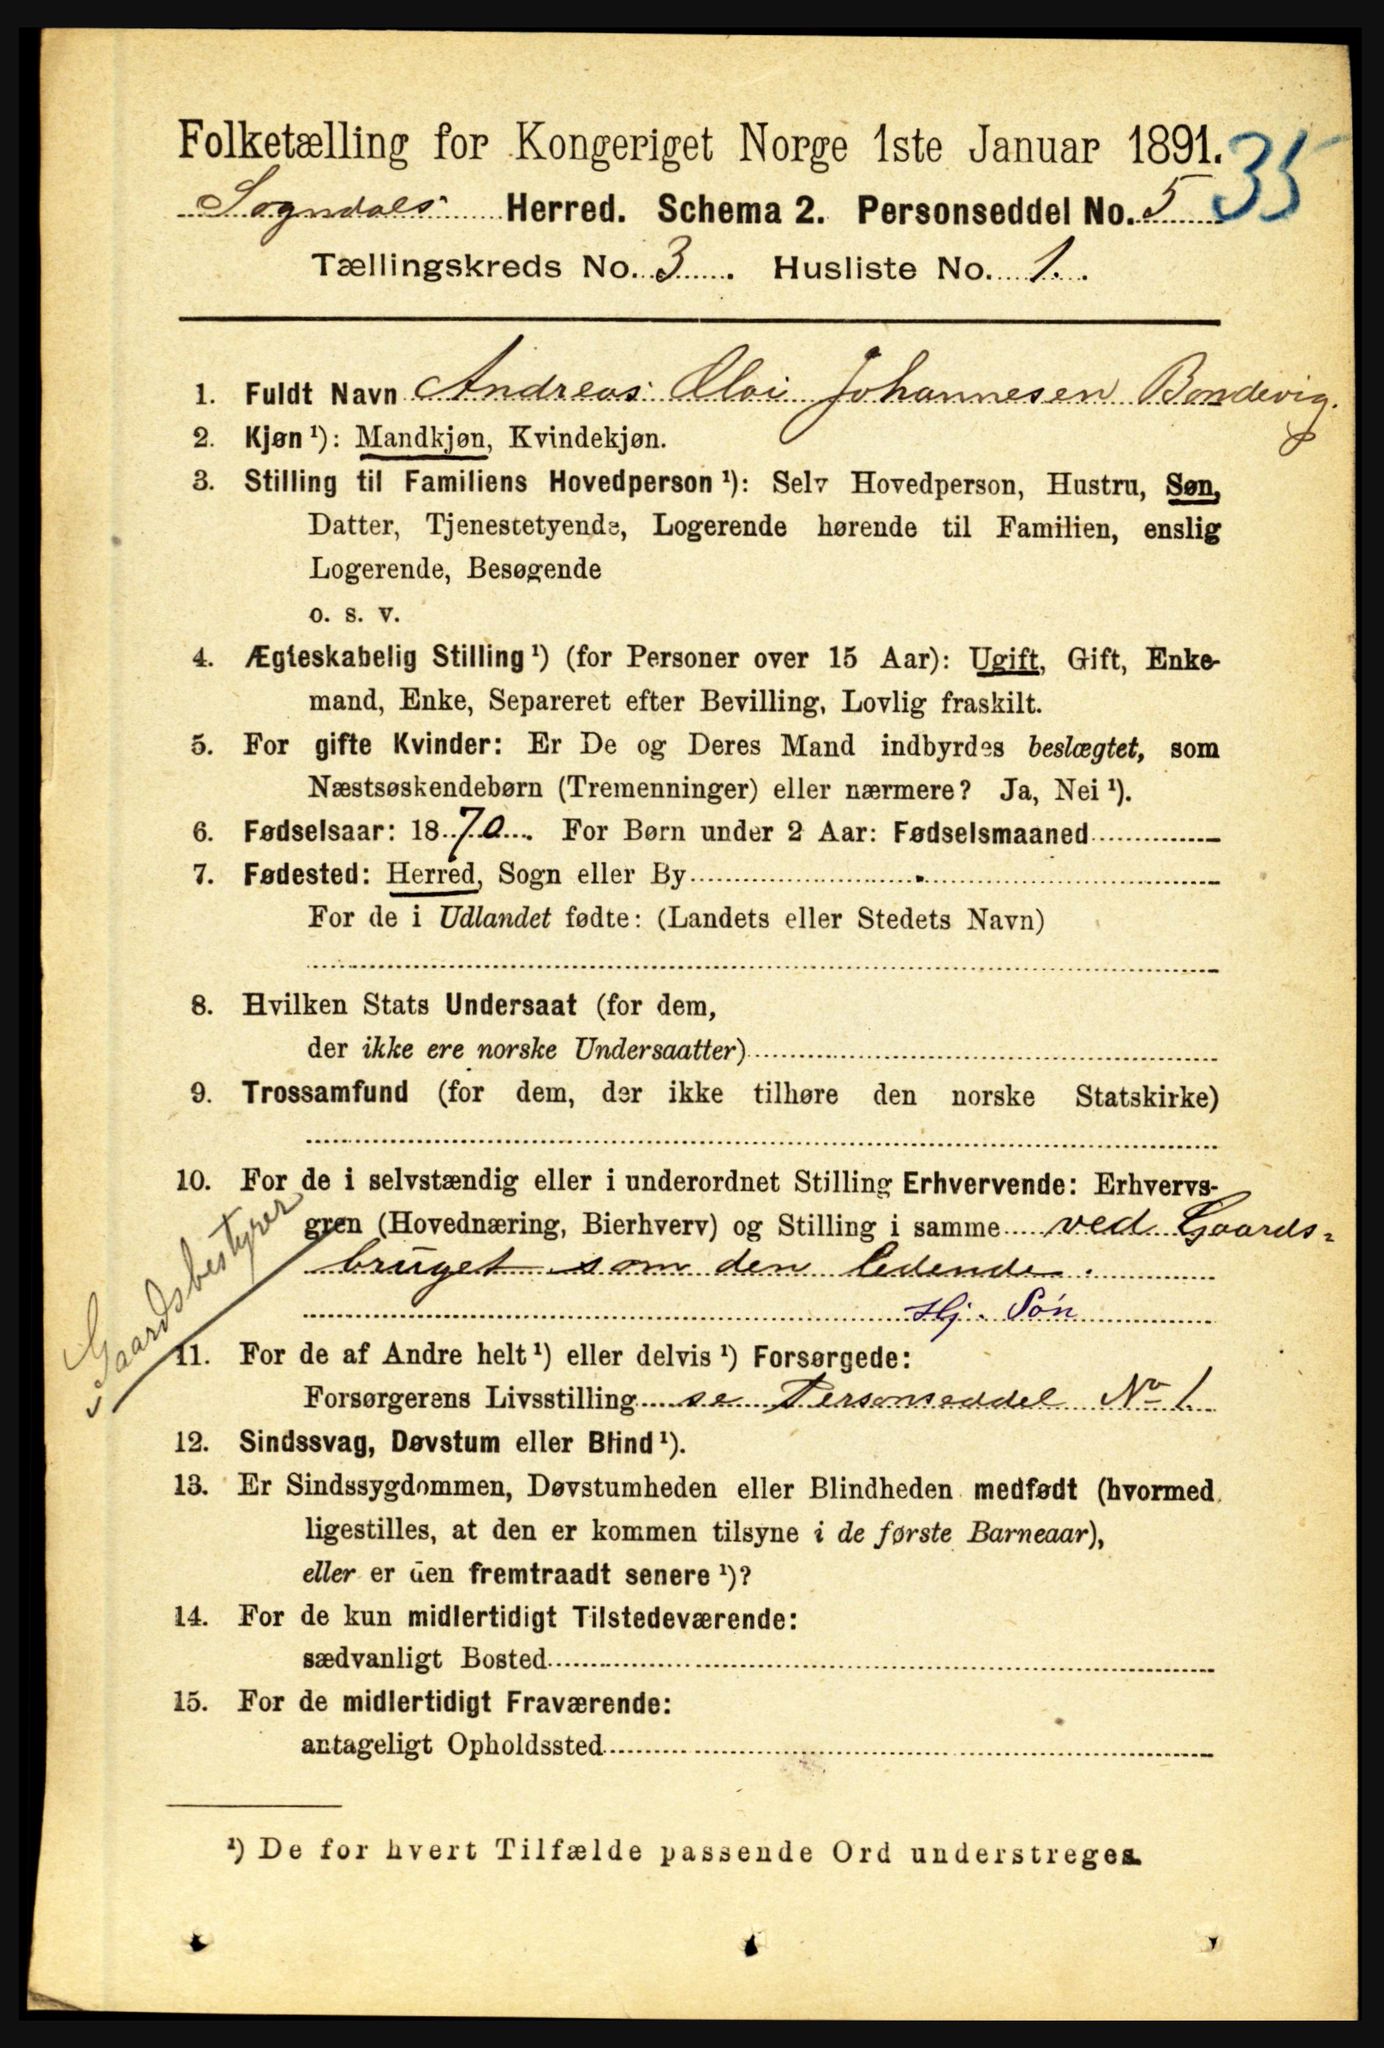 Folketælling for Kongeriget Norge 1ste Januar 1891.
35
Sogndals Herred. Schema 2. Personseddel No. 5
Tællingskreds No. 3. Husliste No. 1.
1. Fuldt Navn Andreas Olai Johannesen Bondevig.
2. Kjøn ¹): Mandkjøn, Kvindekjøn.
3. Stilling til Familiens Hovedperson ¹): Selv Hovedperson, Hustru, Søn,
Datter, Tjenestetyende, Logerende hørende til Familien, enslig
Logerende, Besøgende
o. s. v.
4. Ægteskabelig Stilling ¹) (for Personer over 15 Aar): Ugift, Gift, Enke-
mand, Enke, Separeret efter Bevilling, Lovlig fraskilt.
5. For gifte Kvinder: Er De og Deres Mand indbyrdes beslægtet, som
Næstsøskendebørn (Tremenninger) eller nærmere? Ja, Nei ¹).
6. Fødselsaar: 1870. For Børn under 2 Aar: Fødselsmaaned
7. Fødested: Herred, Sogn eller By
For de i Udlandet fødte: (Landets eller Stedets Navn)
8. Hvilken Stats Undersaat (for dem,
der ikke ere norske Undersaatter)
9. Trossamfund (for dem, der ikke tilhøre den norske Statskirke)
10. For de i selvstændig eller i underordnet Stilling Erhvervende: Erhvervs-
gren (Hovednæring, Bierhverv) og Stilling i samme ved Gaards-
bruget som den ledende.
Hj. Søn
Gaardsbestyrer
11. For de af Andre helt ¹) eller delvis ¹) Forsørgede:
Forsørgerens Livsstilling se Personseddel No 1.
12. Sindssvag, Døvstum eller Blind ¹).
13. Er Sindssygdommen, Døvstumheden eller Blindheden medfødt (hvormed
ligestilles, at den er kommen tilsyne i de første Barneaar),
eller er den fremtraadt senere ¹)?
14. For de kun midlertidigt Tilstedeværende:
sædvanligt Bosted
15. For de midlertidigt Fraværende:
antageligt Opholdssted
¹) De for hvert Tilfælde passende Ord understreges.